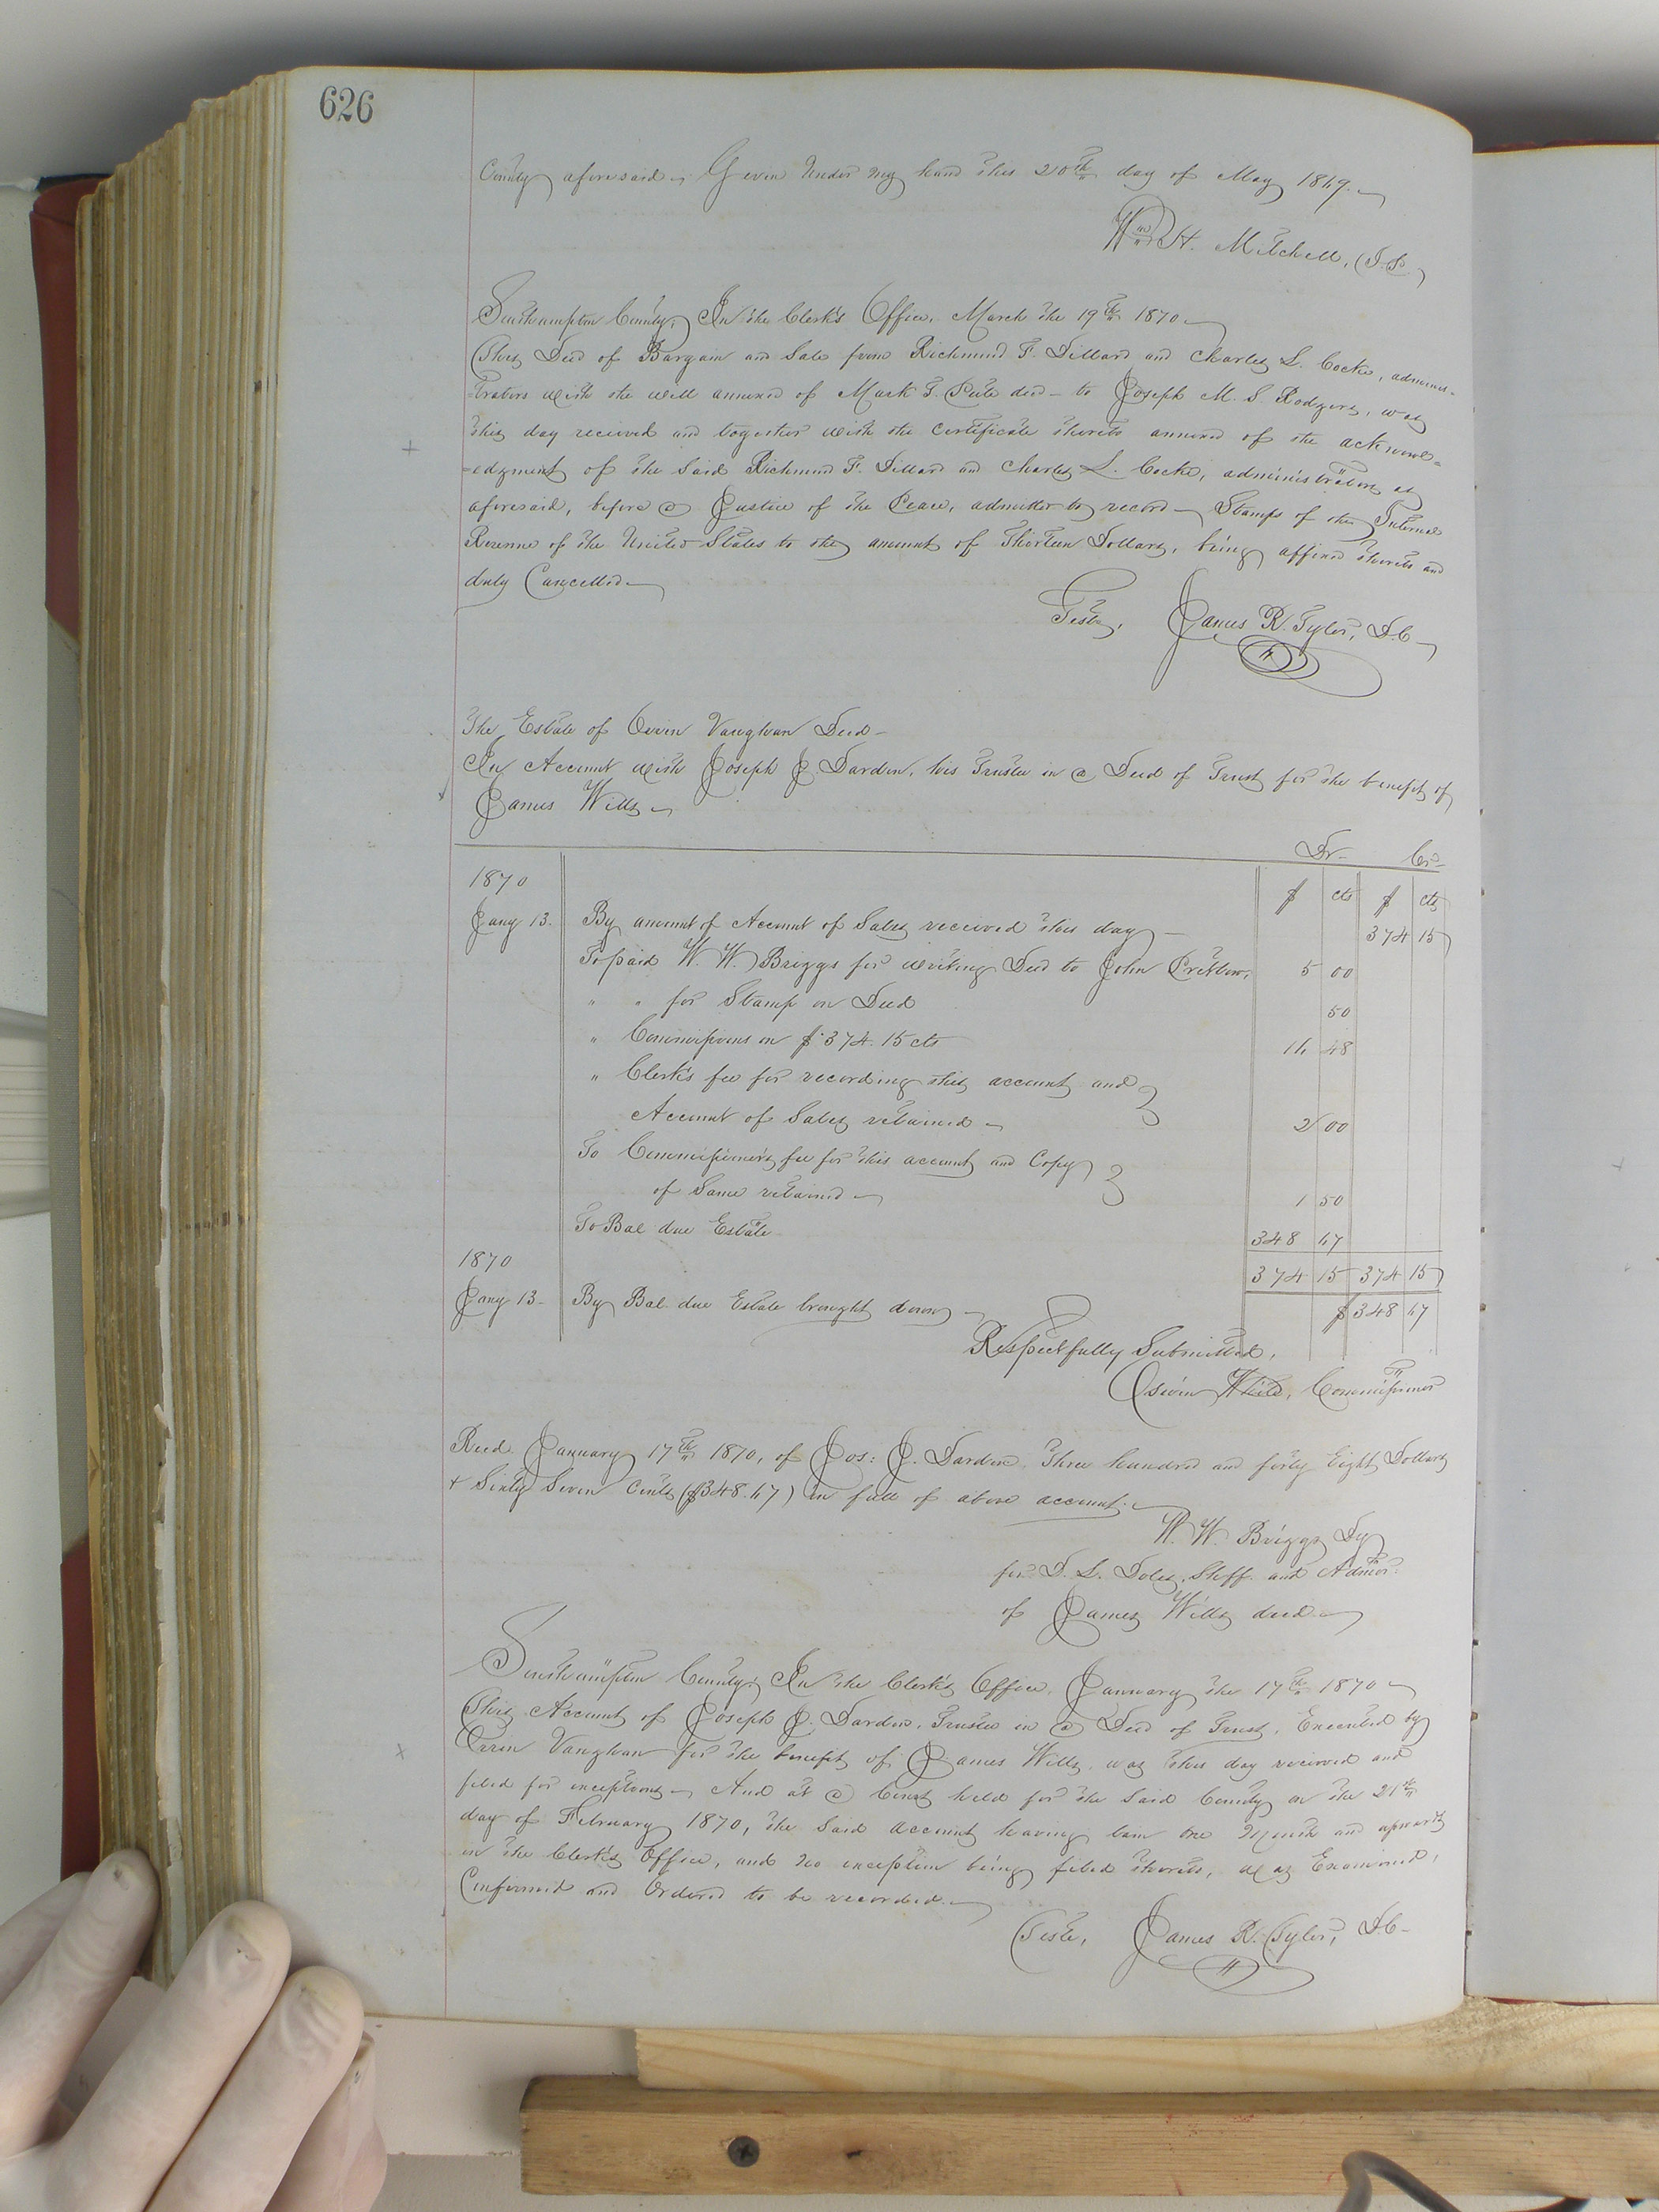 626
County aforesaid. Given Under my hand this 20th day of May 1869.
Wm H. Mitchell, J.P.
Southampton County; In the Clerk's Office, March the 19th 1870
This Deed of Bargain and Sale from Richmond F. Dillard and Charles L. Cocke, adminis-
-trators with the will annexed of Mark T. Pate decd - to Joseph M. S. Rodgers, was
this day received and together with the Certificate thereto annexed of the acknowl=
=edgment of the Said Richmond F. Dillard and Charles L. Cocke, administrators as
aforesaid, before a Justice of the Peace, admitted to record - Stamps of the Internal
Revenue of the United States to the amount of Thirteen Dollars, being affixed thereto and
duly Cancelled
Teste, James R. Tyler, D.C.
The Estate of Orrin Vaughan Decd -
In Account with Joseph J. Darden, his Trustee in a Deed of Trust for the benefit of
James Wills
Dr. Cr.
1870 $ cts $ cts
Jany 13. By amount of Account of Sales received this day 374 15
To paid W. W. Briggs for writing Deed to John Pretlow, 5 00
" " for Stamp on Deed 50
" Commissions on $374.15 cts 16 48
" Clerk's fee for recording this account and
Account of Sales retained 2 00
To Commissioner's fee for this account and Copy
of Same retained 1 50
To Bal due Estate 348 67
1870 374 15 374 15
Jany 13 - By Bal due Estate brought down $348 67
Respectfully Submitted,
Oswin White, Commissioner
Recd. January 17th 1870, of Jos: J. Darden, Three hundred and forty Eight Dollars
& Sixty Seven Cents ($348.67) in full of above account.
W. W. Briggs Dy
for D. L. Doles, Shff. and Admor.
of James Wills decd.
Southampton County; In the Clerk's Office, January the 17th 1870
This Account of Joseph J. Darden, Trustee in a Deed of Trust, Executed by
Orrin Vaughan for the benefit of James Wills, was this day received and
filed for exceptions - And at a Court held for the Said County on the 21st
day of February 1870, the Said account having been one Month and upwards
in the Clerk's Office, and no exception being filed thereto, was Examined,
Confirmed and Ordered to be recorded.
Teste, James R. Tyler, D.C.